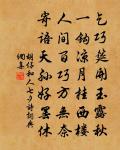 乞巧筵開玉露秋
一鈎涼月挂西樓
人間百巧方無奈
寄語天孫好罷休
胡仔和人七夕詩詞典
網集